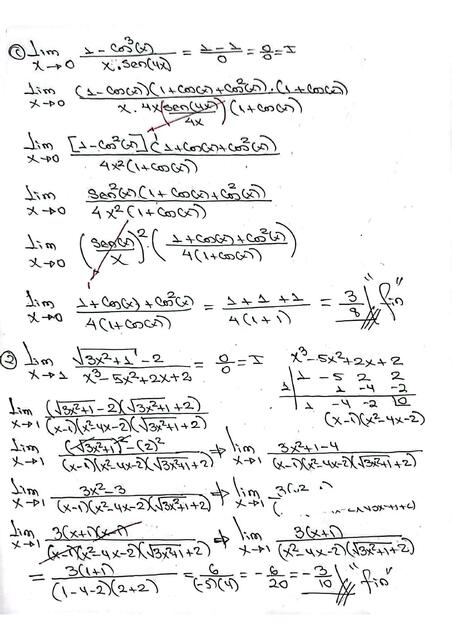 c) Lim x→0 (1 - cos³(x))/(x · sen(4x)) = (1 - 1)/0 = 0/0 = I
Lim x→0 ((1 - cos(x))(1 + cos(x) + cos²(x)) · (1 + cos(x)))/(x · 4x (sen(4x)/4x) (1 + cos(x)))
Lim x→0 ([1 - cos²(x)] (1 + cos(x) + cos²(x)))/(4x²(1 + cos(x)))
Lim x→0 (sen²(x)(1 + cos(x) + cos²(x)))/(4x²(1 + cos(x)))
Lim x→0 (sen(x)/x)² · ((1 + cos(x) + cos²(x))/(4(1 + cos(x))))
Lim x→0 (1 + cos(x) + cos²(x))/(4(1 + cos(x))) = (1 + 1 + 1)/(4(1 + 1)) = 3/8 // "fin"
2) Lim x→1 (√(3x²+1) - 2)/(x³ - 5x² + 2x + 2) = 0/0 = I
x³ - 5x² + 2x + 2
1 -5 2 2
1 | 1 -4 -2
1 -4 -2 0
(x-1)(x²-4x-2)
Lim x→1 ((√(3x²+1) - 2)(√(3x²+1) + 2))/((x-1)(x²-4x-2)(√(3x²+1) + 2))
Lim x→1 ((√(3x²+1))² - (2)²)/((x-1)(x²-4x-2)(√(3x²+1) + 2)) ⇒ Lim x→1 (3x²+1-4)/((x-1)(x²-4x-2)(√(3x²+1)+2))
Lim x→1 (3x²-3)/((x-1)(x²-4x-2)(√(3x²+1)+2)) ⇒ Lim x→1
Lim x→1 (3(x+1)(x-1))/((x-1)(x²-4x-2)(√(3x²+1)+2)) ⇒ Lim x→1 (3(x+1))/((x²-4x-2)(√(3x²+1)+2))
= (3(1+1))/((1-4-2)(2+2)) = 6/((-5)(4)) = -6/20 = -3/10 // "fin"